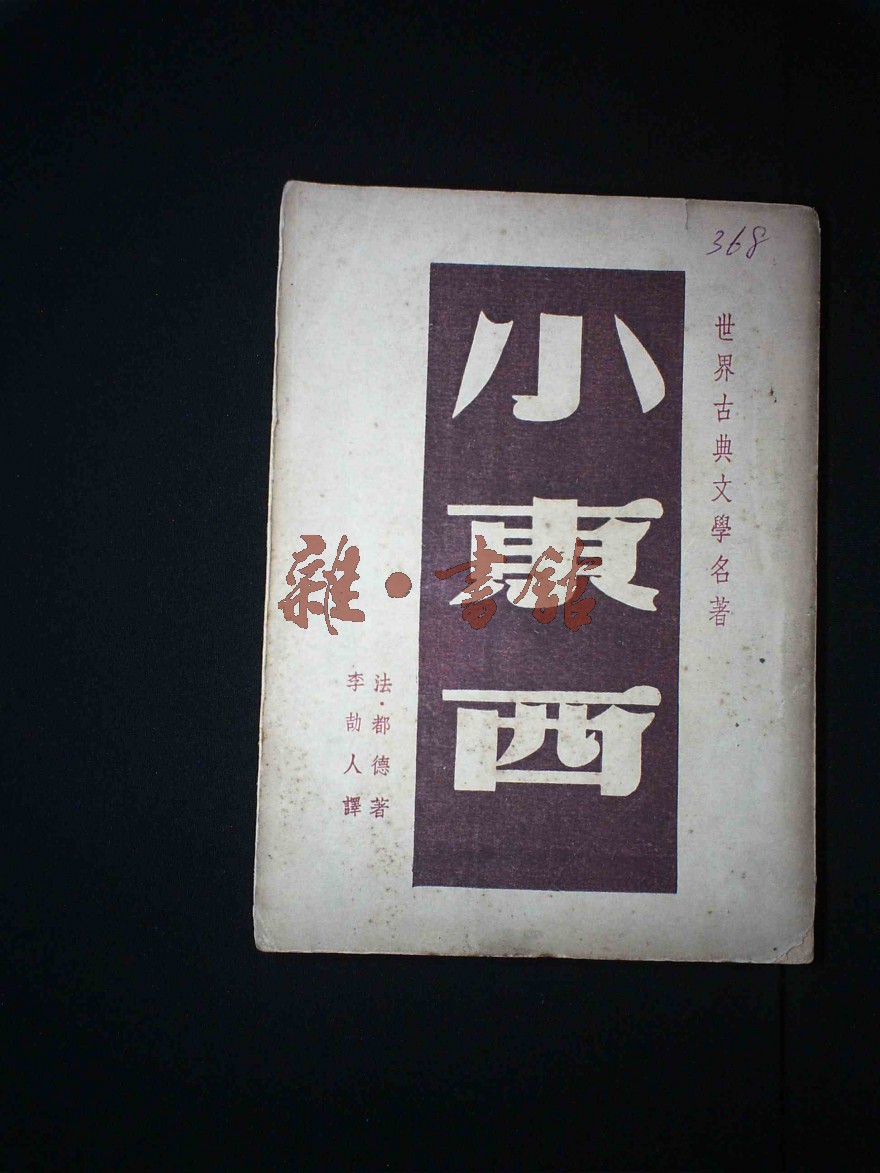 368
世界古典文學名著
小東西
法·都德著
李劼人譯
雜·書館